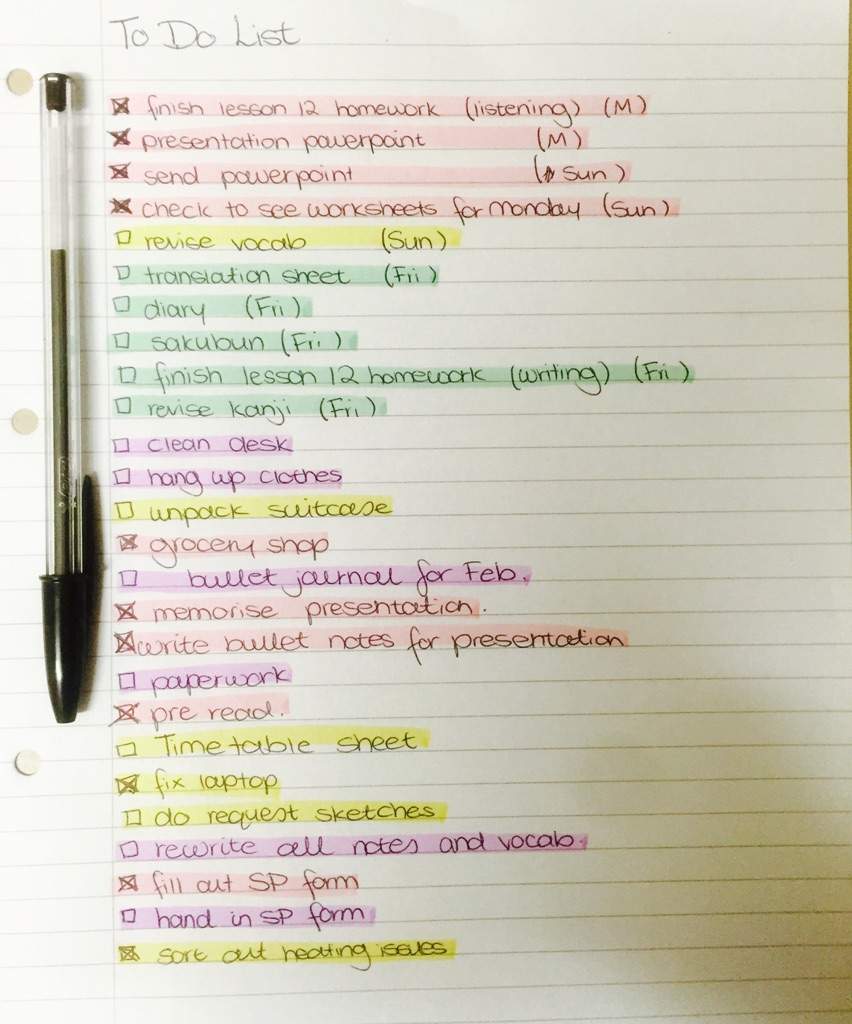 To Do List
finish lesson 12 homework (listening) (M)
presentation powerpoint (M)
send powerpoint (Sun)
check to see worksheets for monday (Sun)
revise vocab (Sun)
translation sheet (Fri)
diary (Fri)
sakubun (Fri)
finish lesson 12 homework (writing) (Fri)
revise kanji (Fri)
clean desk
hang up clothes
unpack suitcase
grocery shop
bullet journal for Feb.
memorise presentation.
write bullet notes for presentation
paperwork
pre read.
Timetable sheet
fix laptop
do request sketches
rewrite all notes and vocab.
fill out SP form
hand in SP form
sort out heating issues